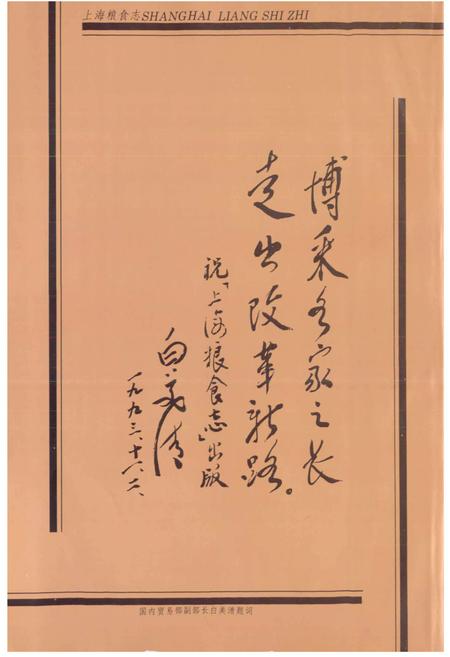 上海粮食志SHANGHAI LIANG SHI ZHI
博采各家之长
走出改革新路。
祝「上海粮食志」出版
白美清
一九九三、十一、二、
国内贸易部副部长白美清题词